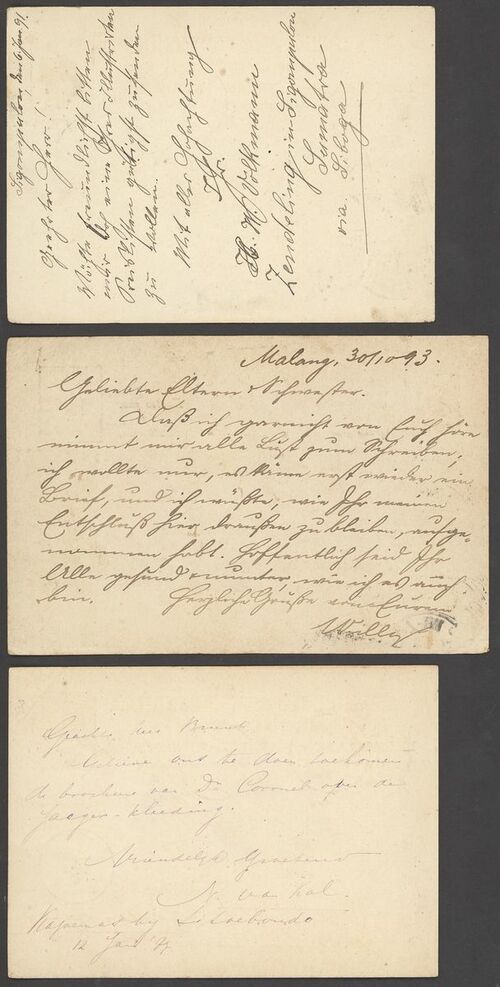 Sigompulon, den 6 Jan 91.
Geehrter Herr!
Möchte freundlichst bitten
mir doch eine Ihrer Illustrirten
Preislisten gütigst zusenden
zu wollen.
Mit aller Hochachtung
Ihr
H. W. Volkmann
Zendeling in Sigompulon
Sumatra
via. Siboga
Malang, 30/10 93.
Geliebte Eltern & Schwester.
Daß ich garnicht von Euch höre
nimmt mir alle Lust zum Schreiben;
ich wollte nur, es käme erst wieder ein
Brief, und ich wüßte, wie Ihr meinen
Entschluß hier draußen zu bleiben, aufge-
nommen habt. Hoffentlich seid Ihr
Alle gesund & munter, wie ich es auch
bin. Herzliche Grüße von Eurem
Willy
Geachte heer
Gelieve ons te doen toekomen
de brochure van Dr Coronel over de
Jaeger-kleeding.
Vriendelijk Groetend
N. van Kol.
Kajoemas bij Sitoebondo
12 Jan